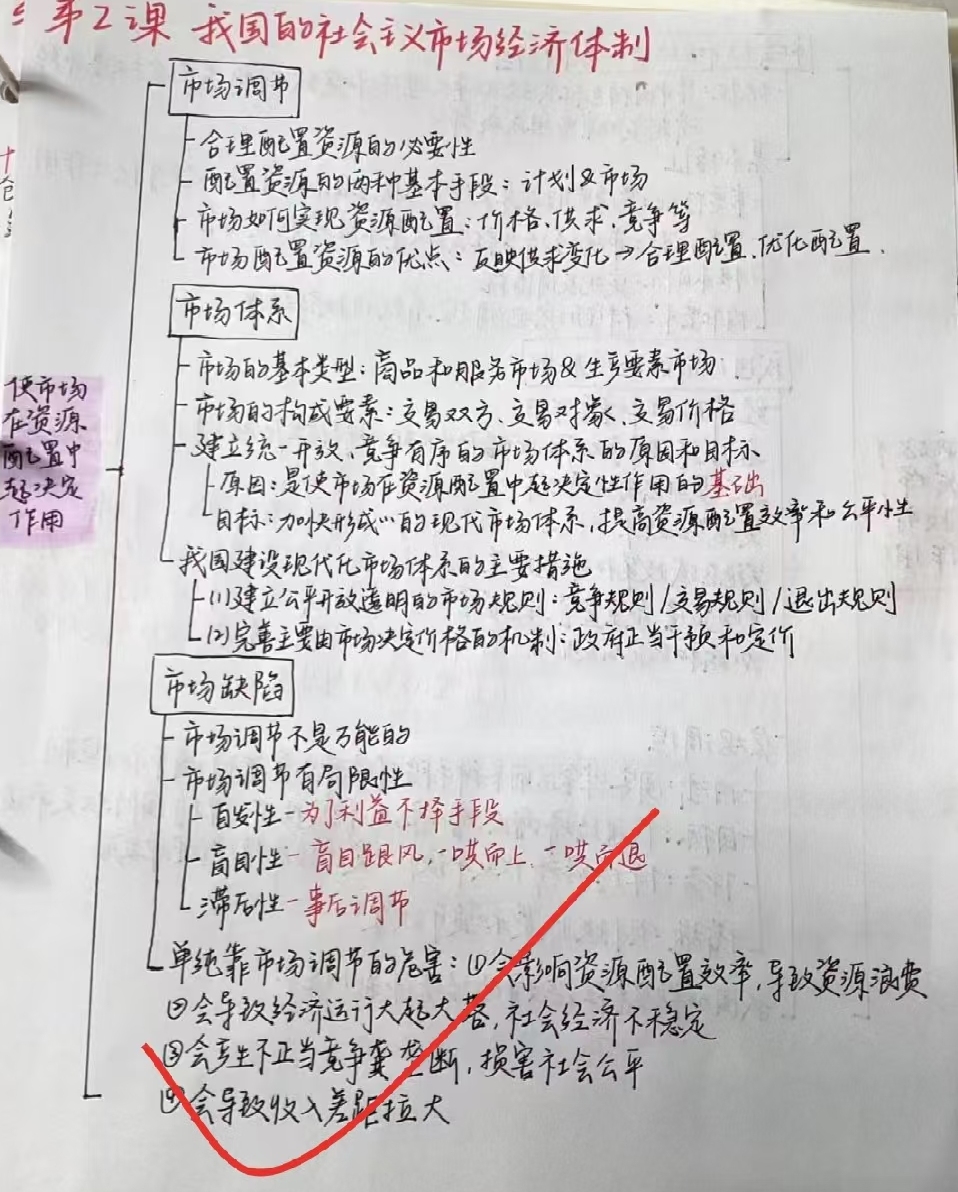 第2课 我国的社会主义市场经济体制
市场调节
合理配置资源的必要性
配置资源的两种基本手段：计划&市场
市场如何实现资源配置：价格、供求、竞争等
市场配置资源的优点：反映供求变化→合理配置、优化配置.
市场体系
市场的基本类型：商品和服务市场&生产要素市场
市场的构成要素：交易双方、交易对象、交易价格
建立统一开放、竞争有序的市场体系的原因和目标
原因：是使市场在资源配置中起决定性作用的基础
目标：加快形成…的现代市场体系，提高资源配置效率和公平性
使市场
在资源
配置中
起决定
作用
我国建设现代化市场体系的主要措施
(1)建立公平开放透明的市场规则：竞争规则/交易规则/退出规则
(2)完善主要由市场决定价格的机制：政府正当干预和定价
市场缺陷
市场调节不是万能的
市场调节有局限性
自发性-为了利益不择手段
盲目性-盲目跟风，一哄而上、一哄而退
滞后性-事后调节
单纯靠市场调节的危害：①会影响资源配置效率，导致资源浪费
②会导致经济运行大起大落，社会经济不稳定
③会产生不正当竞争 垄断，损害社会公平
④会导致收入差距拉大